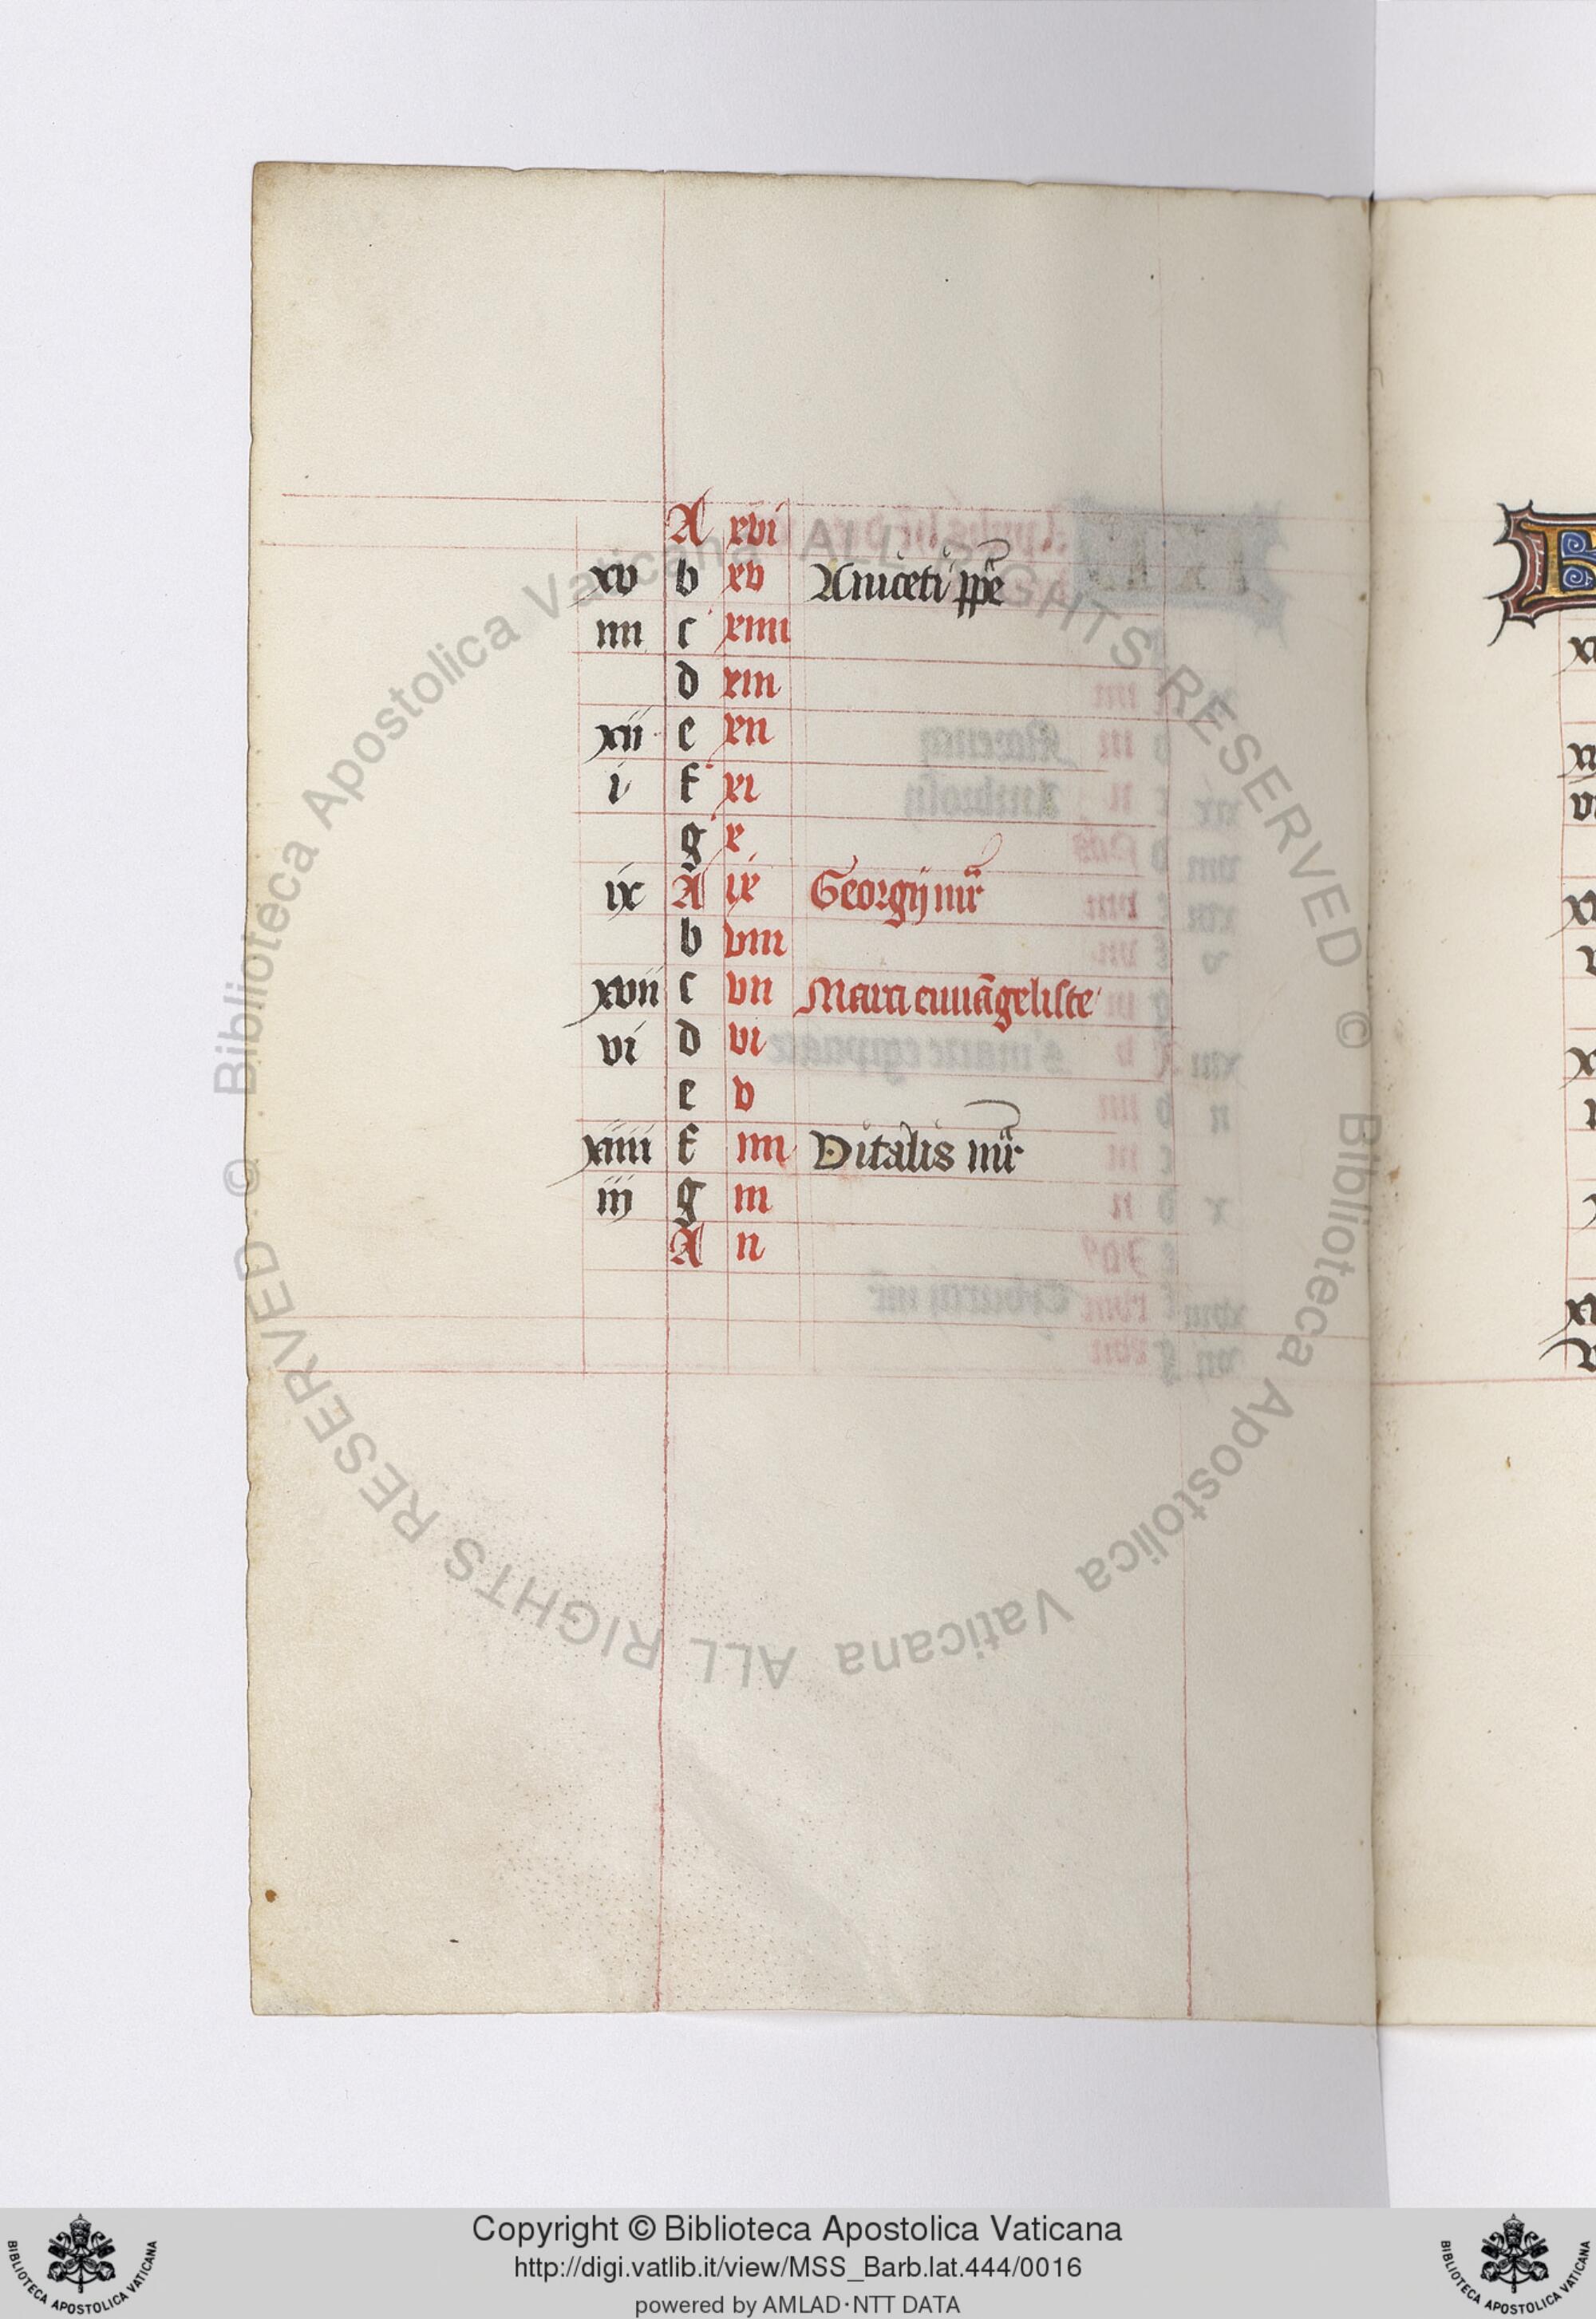 A xvi
xv b xv Aniceti ppe
iiii c xiiii
d xiii
xii e xii
i f xi
g x
ix A ix Georgij mr
b viii
xvii c vii Marci euuāgeliste
vi d vi
e v
xiiii f iiii Vitalis mr
iij g iii
A ii
© Biblioteca Apostolica Vaticana ALL RIGHTS RESERVED © Biblioteca Apostolica Vaticana ALL RIGHTS RESERVED
Copyright © Biblioteca Apostolica Vaticana
http://digi.vatlib.it/view/MSS_Barb.lat.444/0016
powered by AMLAD·NTT DATA
BIBLIOTECA APOSTOLICA VATICANA
BIBLIOTECA APOSTOLICA VATICANA